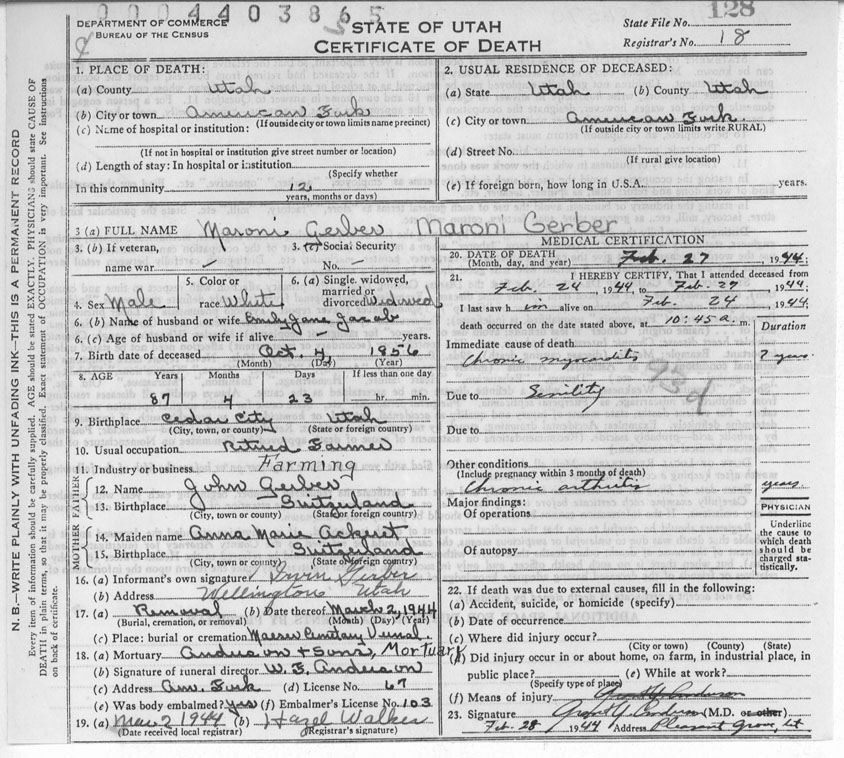 0004403865
128
DEPARTMENT OF COMMERCE
BUREAU OF THE CENSUS
STATE OF UTAH
CERTIFICATE OF DEATH
State File No.
Registrar's No. 18
N. B.—WRITE PLAINLY WITH UNFADING INK—THIS IS A PERMANENT RECORD
Every item of information should be carefully supplied. AGE should be stated EXACTLY. PHYSICIANS should state CAUSE OF
DEATH in plain terms, so that it may be properly classified. Exact statement of OCCUPATION is very important. See instructions
on back of certificate.
1. PLACE OF DEATH:
(a) County Utah
(b) City or town American Fork
(If outside city or town limits name precinct)
(c) Name of hospital or institution:
(If not in hospital or institution give street number or location)
(d) Length of stay: In hospital or institution
(Specify whether
In this community 12
years, months or days)
2. USUAL RESIDENCE OF DECEASED:
(a) State Utah (b) County Utah
(c) City or town American Fork.
(If outside city or town limits write RURAL)
(d) Street No.
(If rural give location)
(e) If foreign born, how long in U.S.A. years.
3 (a) FULL NAME Maroni Gerber Maroni Gerber
3. (b) If veteran,
name war —
3. (c) Social Security
No. —
4. Sex Male
5. Color or
race White
6. (a) Single, widowed,
married or
divorced Widowed
6. (b) Name of husband or wife Emily Jane Jacob
6. (c) Age of husband or wife if alive — years.
7. Birth date of deceased Oct. 4, 1856
(Month) (Day) (Year)
8. AGE Years Months Days If less than one day
87 4 23 hr. min.
9. Birthplace Cedar City Utah
(City, town, or county) (State or foreign country)
10. Usual occupation Retired Farmer
11. Industry or business Farming
FATHER
12. Name John Gerber
13. Birthplace Switzerland
(City, town or county) (State or foreign country)
MOTHER
14. Maiden name Anna Marie Ackret
15. Birthplace Switzerland
(City, town or county) (State or foreign country)
16. (a) Informant's own signature Irvin Gerber
(b) Address Wellington Utah
17. (a) Removal (b) Date thereof March 2, 1944
(Burial, cremation, or removal) (Month) (Day) (Year)
(c) Place: burial or cremation Maeser Cemetary Vernal.
18. (a) Mortuary Anderson & Sons, Mortuary
(b) Signature of funeral director W. E. Anderson
(c) Address Am. Fork (d) License No. 67
(e) Was body embalmed? Yes (f) Embalmer's License No. 103
19. (a) Mar 2 1944 (b) Hazel Walker
(Date received local registrar) (Registrar's signature)
MEDICAL CERTIFICATION
20. DATE OF DEATH Feb. 27 1944
(Month, day, and year)
21. I HEREBY CERTIFY, That I attended deceased from
Feb. 24, 1944, to Feb. 27 1944.
I last saw him alive on Feb. 24 1944
death occurred on the date stated above, at 10:45 a. m.
Duration
Immediate cause of death
Chronic myocarditis ? years
93d
Due to Senility
Due to
Other conditions
(Include pregnancy within 3 months of death)
Chronic arthritis years
Major findings:
Of operations
Of autopsy
PHYSICIAN
Underline
the cause to
which death
should be
charged sta-
tistically.
22. If death was due to external causes, fill in the following:
(a) Accident, suicide, or homicide (specify)
(b) Date of occurrence
(c) Where did injury occur?
(City or town) (County) (State)
(d) Did injury occur in or about home, on farm, in industrial place, in
public place? (e) While at work?
(Specify type of place)
(f) Means of injury Grant Y. Anderson
23. Signature Grant Y. Anderson (M.D. or other)
Feb. 28 1944 Address Pleasant Grove, Ut.